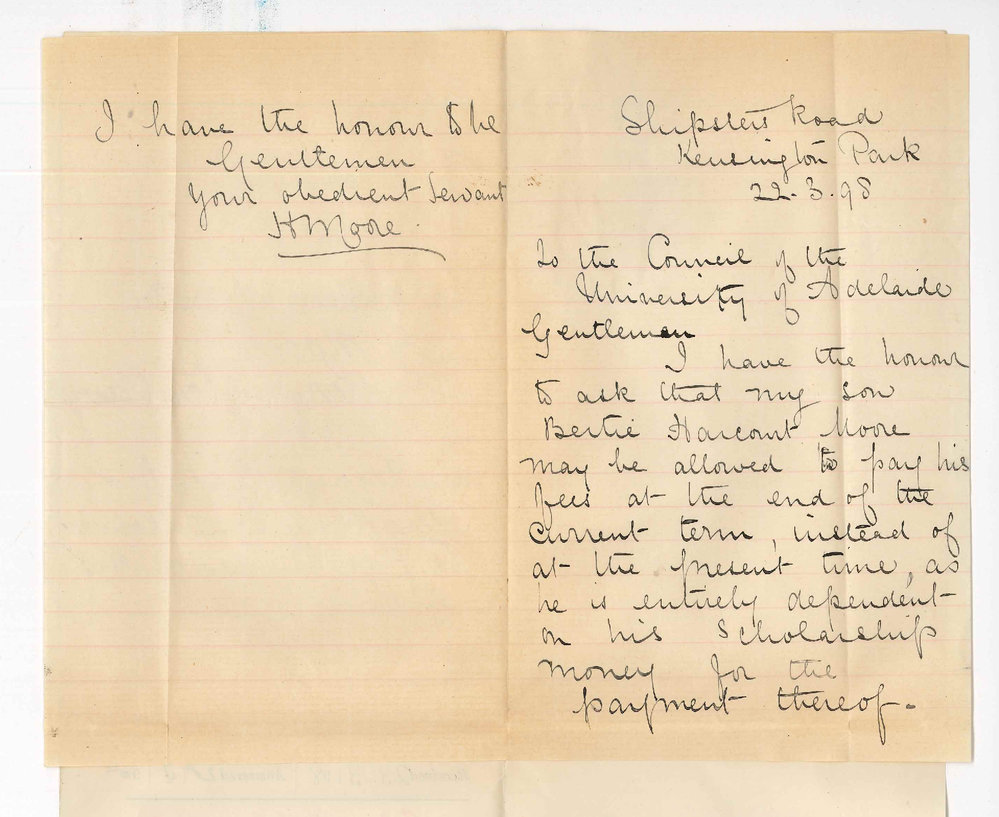 Shipsters Road
Kensington Park
22.3.98
To the Council of the
University of Adelaide
Gentlemen
I have the honour
to ask that my son
Bertie Harcourt Moore
may be allowed to pay his
fees at the end of the
current term, instead of
at the present time, as
he is entirely dependent
on his Scholarship
money for the
payment thereof.
I have the honour to be
Gentlemen
Your obedient Servant
H Moore